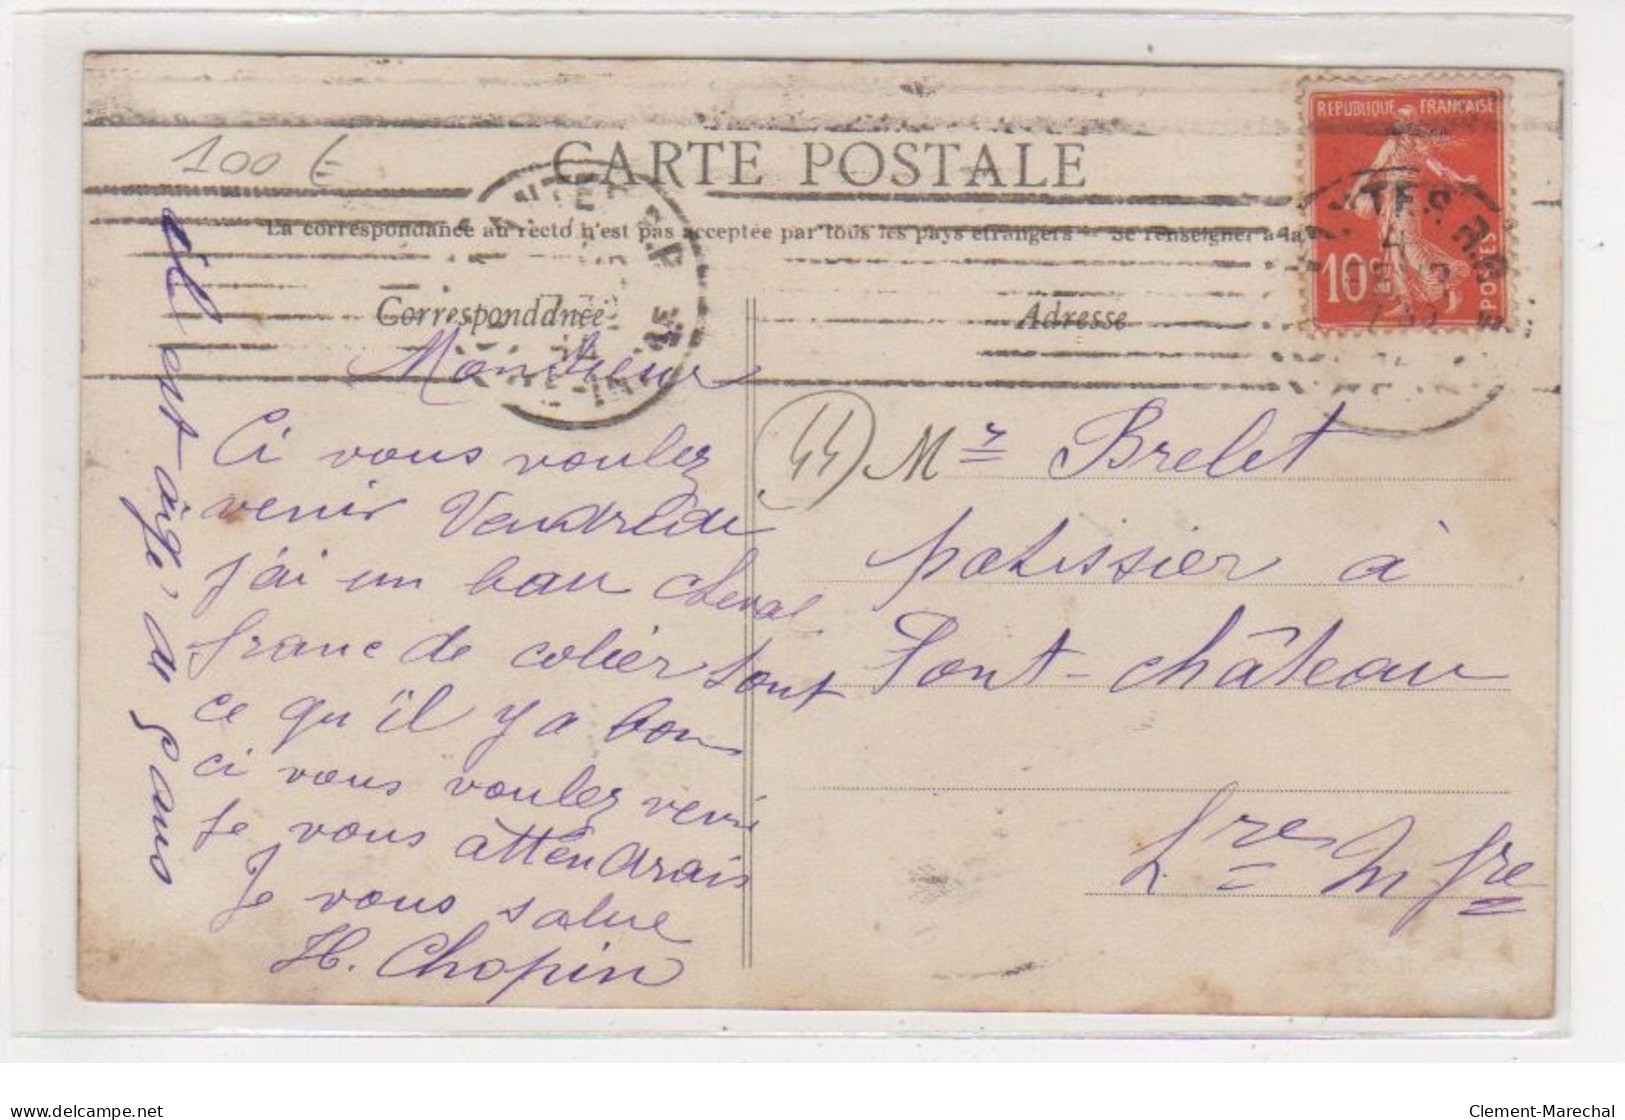 100 €
CARTE POSTALE
La correspondance au recto n'est pas acceptée par tous les pays étrangers - Se renseigner à la
REPUBLIQUE FRANÇAISE
10c
POSTES
Correspondance
Monsieur
Ci vous voulez
venir Vendredi
j'ai un bau cheval
franc de colier tout
ce qu'il y a bon
ci vous voulez venir
Je vous attendrais
Je vous salue
H. Chopin
il est agé, de 5 ans
Adresse
44
Mr Brelet
patissier à
Pont-château
Lre Infre
delcampe.net
Clement-Marechal